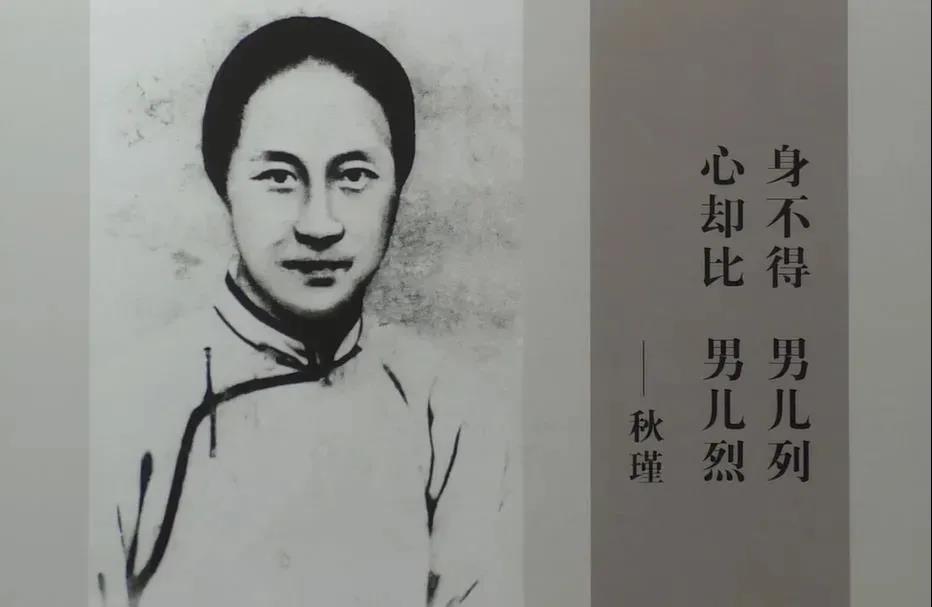 身不得 男儿列
心却比 男儿烈
——秋瑾